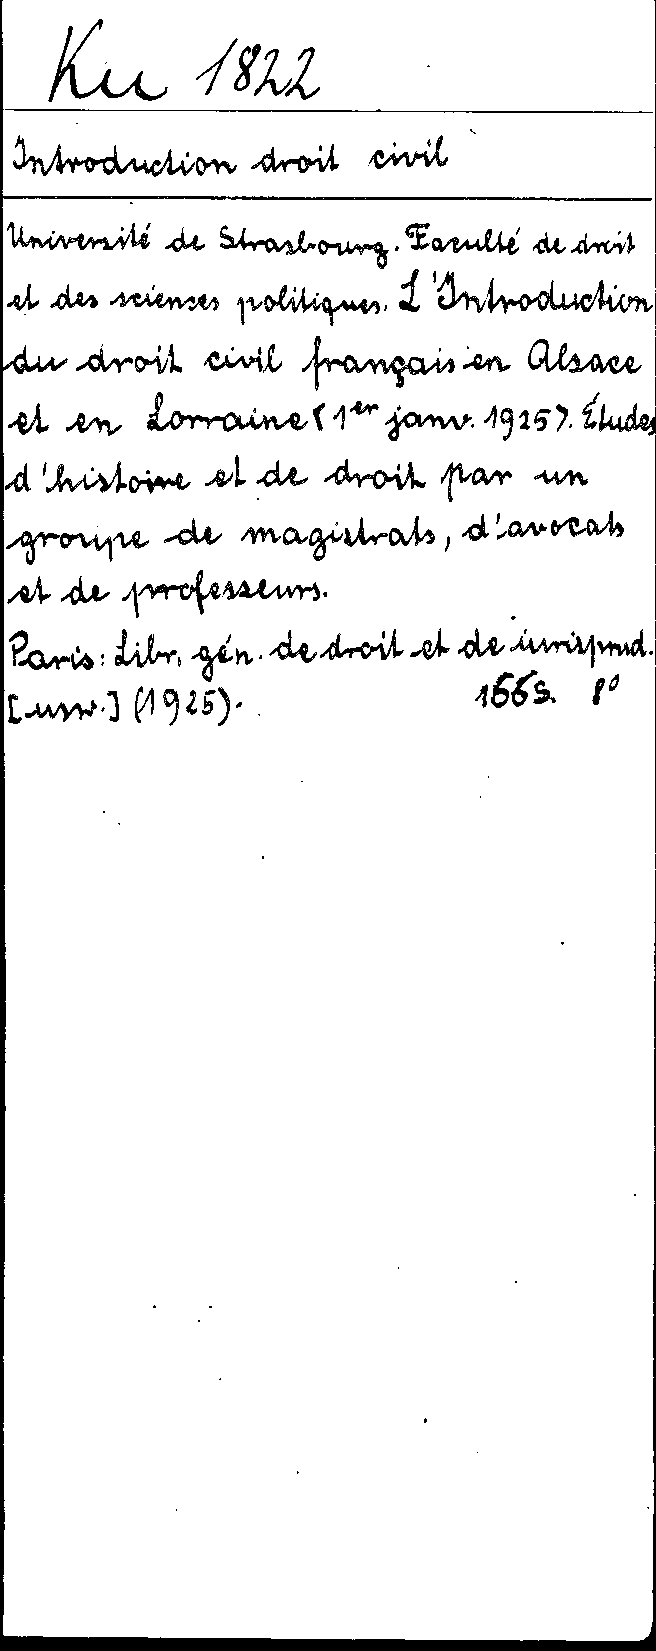 Ku 1822
Introduction droit civil
Université de Strasbourg. Faculté de droit
et des sciences politiques. L'Introduction
du droit civil français en Alsace
et en Lorraine <1er janv. 1925>. Études
d'histoire et de droit par un
groupe de magistrats, d'avocats
et de professeurs.
Paris: Libr. gén. de droit et de iurisprud.
[usw.] (1925). 166 S. 8°